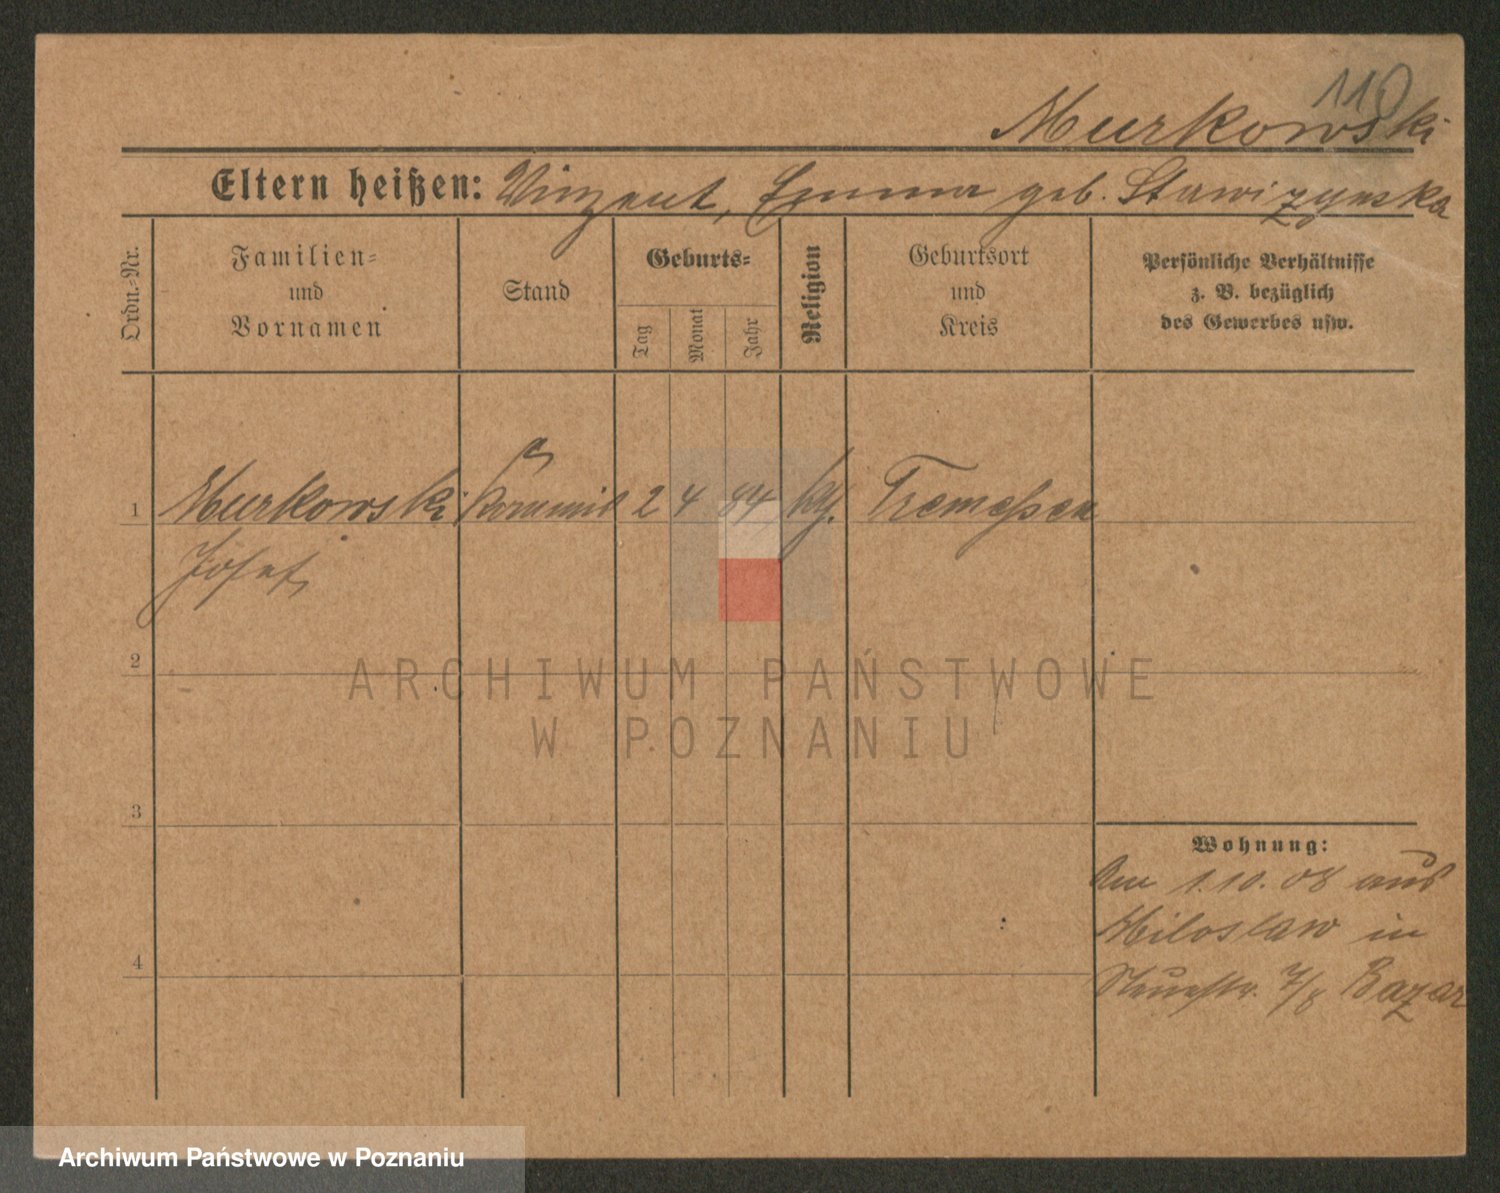 110
Murkowski
Eltern heißen: Vinzent, Emma geb. Stawizynska
Ordn.=Nr.
Familien=
und
Vornamen
Stand
Geburts=
Tag
Monat
Jahr
Religion
Geburtsort
und
Kreis
Persönliche Verhältnisse
z. B. bezüglich
des Gewerbes usw.
1 Murkowski Kommis 2 4 84 kth. Tremessen
Josef
2
ARCHIWUM PAŃSTWOWE
W POZNANIU
3
Wohnung:
Am 1.10.08 aus
Miloslaw in
7/8 Bazar
4
Archiwum Państwowe w Poznaniu